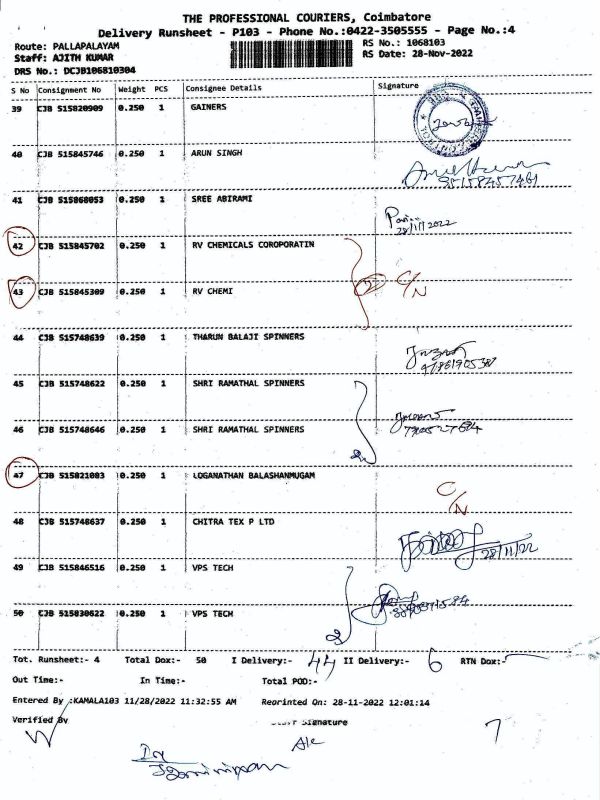 THE PROFESSIONAL COURIERS, Coimbatore
Delivery Runsheet - P103 - Phone No.:0422-3505555 - Page No.:4
Route: PALLAPALAYAM RS No.: 1068103
Staff: AJITH KUMAR RS Date: 28-Nov-2022
DRS No.: DCJB106810304
S No Consignment No Weight PCS Consignee Details Signature
39 CJB 515820909 0.250 1 GAINERS
40 CJB 515845746 0.250 1 ARUN SINGH
41 CJB 515868053 0.250 1 SREE ABIRAMI
28/11/2022
42 CJB 515845702 0.250 1 RV CHEMICALS COROPORATIN
2 C/N
43 CJB 515845309 0.250 1 RV CHEMI
44 CJB 515748639 0.250 1 THARUN BALAJI SPINNERS
45 CJB 515748622 0.250 1 SHRI RAMATHAL SPINNERS
46 CJB 515748646 0.250 1 SHRI RAMATHAL SPINNERS
2
47 CJB 515821003 0.250 1 LOGANATHAN BALASHANMUGAM
C/N
48 CJB 515748637 0.250 1 CHITRA TEX P LTD
28/11/22
49 CJB 515846516 0.250 1 VPS TECH
50 CJB 515830622 0.250 1 VPS TECH
2
Tot. Runsheet:- 4 Total Dox:- 50 I Delivery:- 44 II Delivery:- 6 RTN Dox:-
Out Time:- In Time:- Total POD:-
Entered By :KAMALA103 11/28/2022 11:32:55 AM Reprinted On: 28-11-2022 12:01:14
Verified By Staff Signature
7